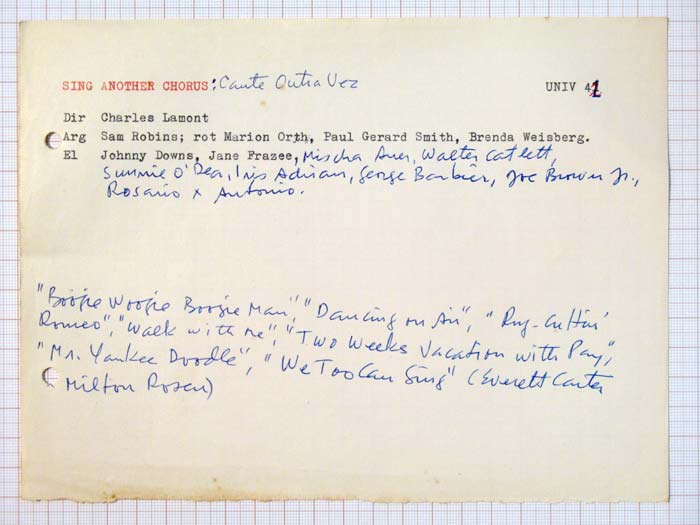 SING ANOTHER CHORUS: Cante Outra Vez UNIV 41
Dir Charles Lamont
Arg Sam Robins; rot Marion Orth, Paul Gerard Smith, Brenda Weisberg.
El Johnny Downs, Jane Frazee, Mischa Auer, Walter Catlett,
Sunnie O'Dea, Iris Adrian, George Barbier, Joe Brown Jr.,
Rosario x Antonio.
"Boogie Woogie Boogie Man", "Dancing on Air", "Rug-Cuttin'
Romeo", "Walk with me", "Two Weeks Vacation with Pay",
"Mr. Yankee Doodle", "We Too Can Sing" (Everett Carter
Milton Rosen)